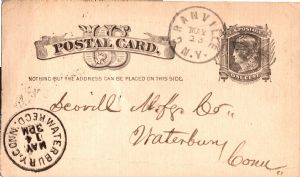 U S
POSTAL CARD.
GRANVILLE
MAY
N.Y.
ONE CENT
NOTHING BUT THE ADDRESS CAN BE PLACED ON THIS SIDE.
Scovill Mfg Co
Waterbury
Conn
WATERBURY, CONN.
MAY
14
3PM
REC'D.